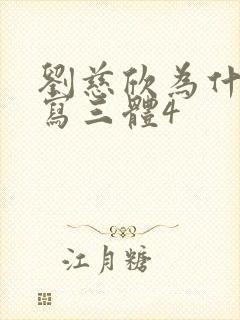 劉慈欣為什
寫三體4
江月糖